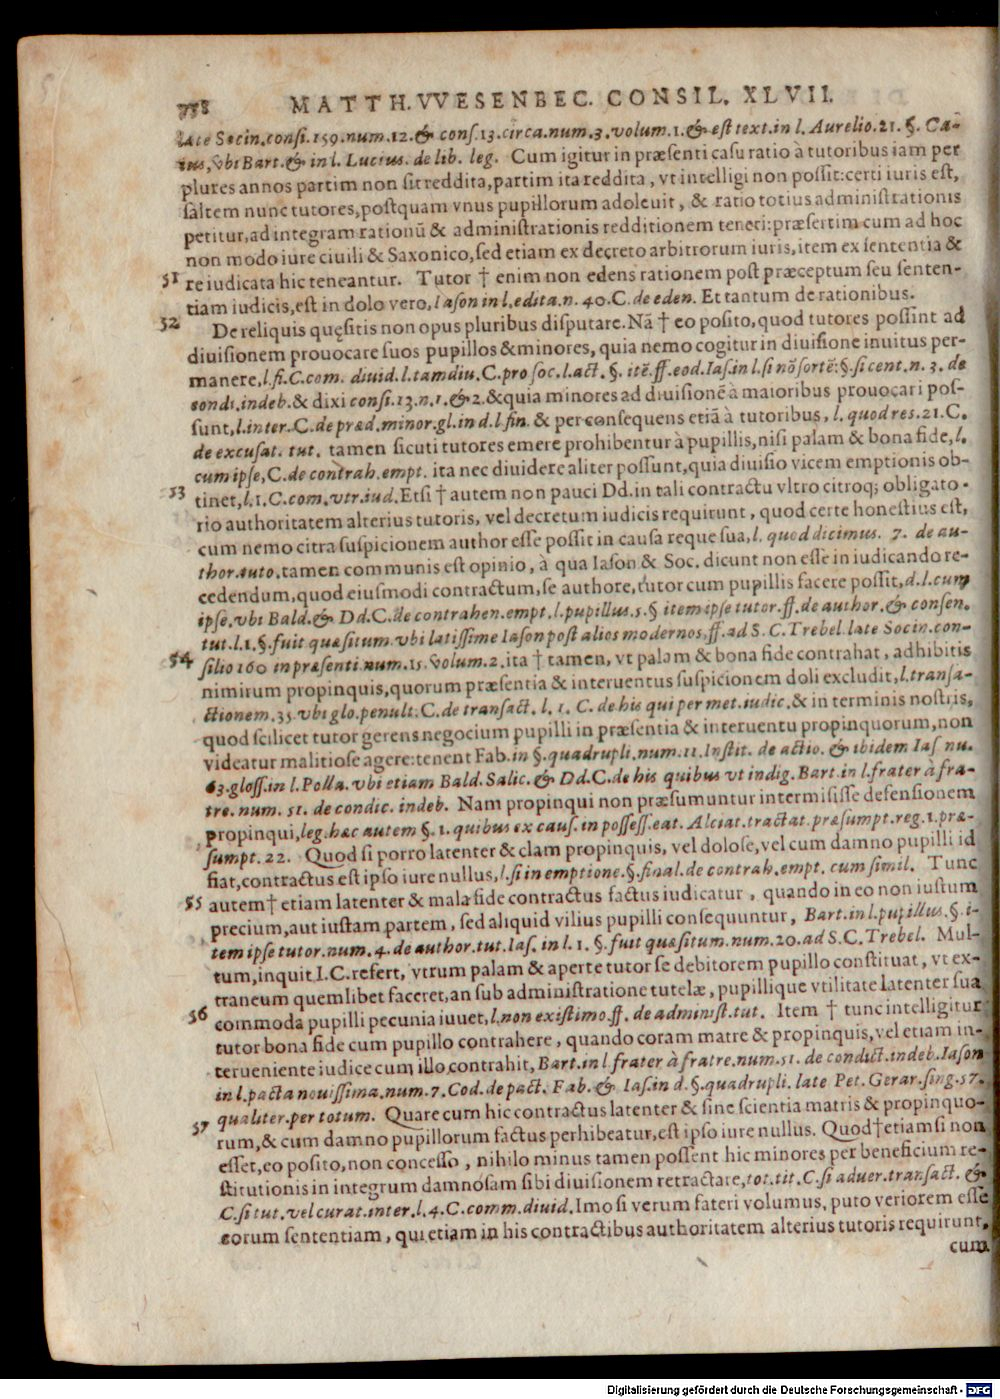 738 MATTH. VVESENBEC. CONSIL. XLVII.
late Socin. consi. 159. num. 12. & cons. 13. circa. num. 3. volum. 1. & est text. in l. Aurelio. 21. §. Ca-
ius, vbi Bart. & in l. Lucius. de lib. leg. Cum igitur in præsenti casu ratio à tutoribus iam per
plures annos partim non sit reddita, partim ita reddita, vt intelligi non possit: certi iuris est,
saltem nunc tutores, postquam vnus pupillorum adoleuit, & ratio totius administrationis
petitur, ad integram rationũ & administrationis redditionem teneri: præsertim cum ad hoc
non modo iure ciuili & Saxonico, sed etiam ex decreto arbitrorum iuris, item ex sententia &
51 re iudicata hic teneantur. Tutor † enim non edens rationem post præceptum seu senten-
tiam iudicis, est in dolo vero, Iason in l. edita. n. 40. C. de eden. Et tantum de rationibus.
52 De reliquis quęsitis non opus pluribus disputare. Nã † eo posito, quod tutores possint ad
diuisionem prouocare suos pupillos & minores, quia nemo cogitur in diuisione inuitus per-
manere, l. fi. C. com. diuid. l. tamdiu. C. pro soc. l. act. §. itẽ. ff. eod. Ias. in l. si nõ sortẽ: §. si cent. n. 3. de
condi. indeb. & dixi consi. 13. n. 1. & 2. & quia minores ad diuisionẽ à maioribus prouocari pos-
sunt, l. inter. C. de præd. minor. gl. in d. l. fin. & per consequens etiã à tutoribus, l. quod res. 21. C.
de excusat. tut. tamen sicuti tutores emere prohibentur à pupillis, nisi palam & bona fide, l.
cum ipse, C. de contrah. empt. ita nec diuidere aliter possunt, quia diuisio vicem emptionis ob-
53 tinet, l. 1. C. com. vtr. iud. Etsi † autem non pauci Dd. in tali contractu vltro citroq; obligato-
rio authoritatem alterius tutoris, vel decretum iudicis requirunt, quod certe honestius est,
cum nemo citra suspicionem author esse possit in causa reque sua, l. quod dicimus. 7. de au-
thor. auto. tamen communis est opinio, à qua Iason & Soc. dicunt non esse in iudicando re-
cedendum, quod eiusmodi contractum, se authore, tutor cum pupillis facere possit, d. l. cum
ipse. vbi Bald. & Dd. C. de contrahen. empt. l. pupillus. 5. § item ipse tutor. ff. de author. & consen.
tut. l. 1. §. fuit quæsitum. vbi latissime Iason post alios modernos, ff. ad S. C. Trebel. late Socin. con-
54 silio 160 in præsenti. num. 15. volum. 2. ita † tamen, vt palam & bona fide contrahat, adhibitis
nimirum propinquis, quorum præsentia & interuentus suspicionem doli excludit, l. transa-
ctionem. 35. vbi glo. penult: C. de transact. l. 1. C. de his qui per met. iudic. & in terminis nostris,
quod scilicet tutor gerens negocium pupilli in præsentia & interuentu propinquorum, non
videatur malitiose agere: tenent Fab. in §. quadrupli. num. 11. Instit. de actio. & ibidem Ias. nu.
63. gloss. in l. Polla. vbi etiam Bald. Salic. & Dd. C. de his quibus vt indig. Bart. in l. frater à fra-
tre. num. 51. de condic. indeb. Nam propinqui non præsumuntur intermisisse defensionem
propinqui, leg. hæc autem §. 1. quibus ex caus. in possess. eat. Alciat. tractat. præsumpt. reg. 1. præ-
sumpt. 22. Quod si porro latenter & clam propinquis, vel dolose, vel cum damno pupilli id
fiat, contractus est ipso iure nullus, l. si in emptione. §. final. de contrah. empt. cum simil. Tunc
55 autem † etiam latenter & mala fide contractus factus iudicatur, quando in eo non iustum
precium, aut iustam partem, sed aliquid vilius pupilli consequuntur, Bart. in l. pupillus. §. i-
tem ipse tutor. num. 4. de author. tut. Ias. in l. 1. §. fuit quæsitum. num. 20. ad S. C. Trebel. Mul-
tum, inquit I. C. refert, vtrum palam & aperte tutor se debitorem pupillo constituat, vt ex-
traneum quemlibet faceret, an sub administratione tutelæ, pupillique vtilitate latenter sua
56 commoda pupilli pecunia iuuet, l. non existimo. ff. de administ. tut. Item † tunc intelligitur
tutor bona fide cum pupillo contrahere, quando coram matre & propinquis, vel etiam in-
terueniente iudice cum illo contrahit, Bart. in l. frater à fratre. num. 51. de condict. indeb. Iason
in l. pacta nouissima. num. 7. Cod. de pact. Fab. & Ias. in d. §. quadrupli. late Pet. Gerar. sing. 57.
57 qualiter. per totum. Quare cum hic contractus latenter & sine scientia matris & propinquo-
rum, & cum damno pupillorum factus perhibeatur, est ipso iure nullus. Quod † etiamsi non
esset, eo posito, non concesso, nihilo minus tamen possent hic minores per beneficium re-
stitutionis in integrum damnosam sibi diuisionem retractare, tot. tit. C. si aduer. transact. &
C. si tut. vel curat. inter. l. 4. C. comm. diuid. Imo si verum fateri volumus, puto veriorem esse
eorum sententiam, qui etiam in his contractibus authoritatem alterius tutoris requirunt,
cum
Digitalisierung gefördert durch die Deutsche Forschungsgemeinschaft - DFG